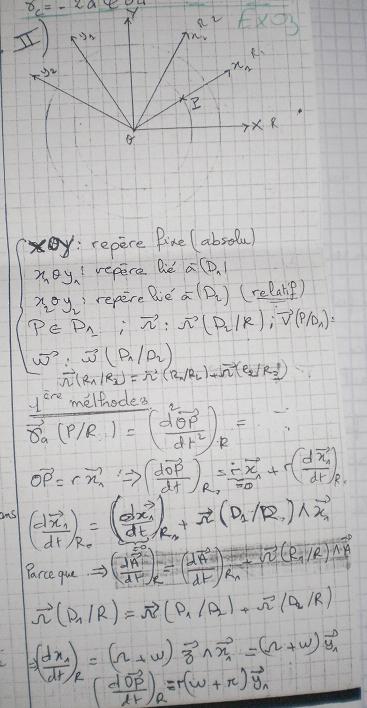 γc = - 2a
EXO3
II)
y
y1
y2
x2 R2
x1 R1
P
θ
X R
XOY: repère fixe (absolu)
x1Oy1: repère lié à (D1)
x2Oy2: repère lié à (D2) (relatif)
P ∈ D1 ; Ω⃗ : Ω⃗ (D2/R) ; V⃗(P/D1):
ω⃗ : ω⃗ (D1/D2)
Ω⃗(R1/R2) = Ω⃗(R1/R2) + Ω⃗(R2/R2)
1ère méthodes
γ⃗a (P/R) = (d²OP⃗/dt²)R =
OP⃗ = r x⃗1 ⇒ (dOP⃗/dt)R = ṙ x⃗1 + r (dx⃗1/dt)R
=0
(dx⃗1/dt)R = (dx⃗1/dt)R1 + Ω⃗ (D1/R) ∧ x⃗1
=0
Parceque ⇒ (dA⃗/dt)R = (dA⃗/dt)R1 + Ω⃗ (R1/R) ∧ A⃗
Ω⃗ (D1/R) = Ω⃗ (D1/D2) + Ω⃗ (D2/R)
⇒ (dx⃗1/dt)R = (Ω + ω) z⃗ ∧ x⃗1 = (Ω + ω) y⃗1
(dOP⃗/dt)R = r (ω + Ω) y⃗1